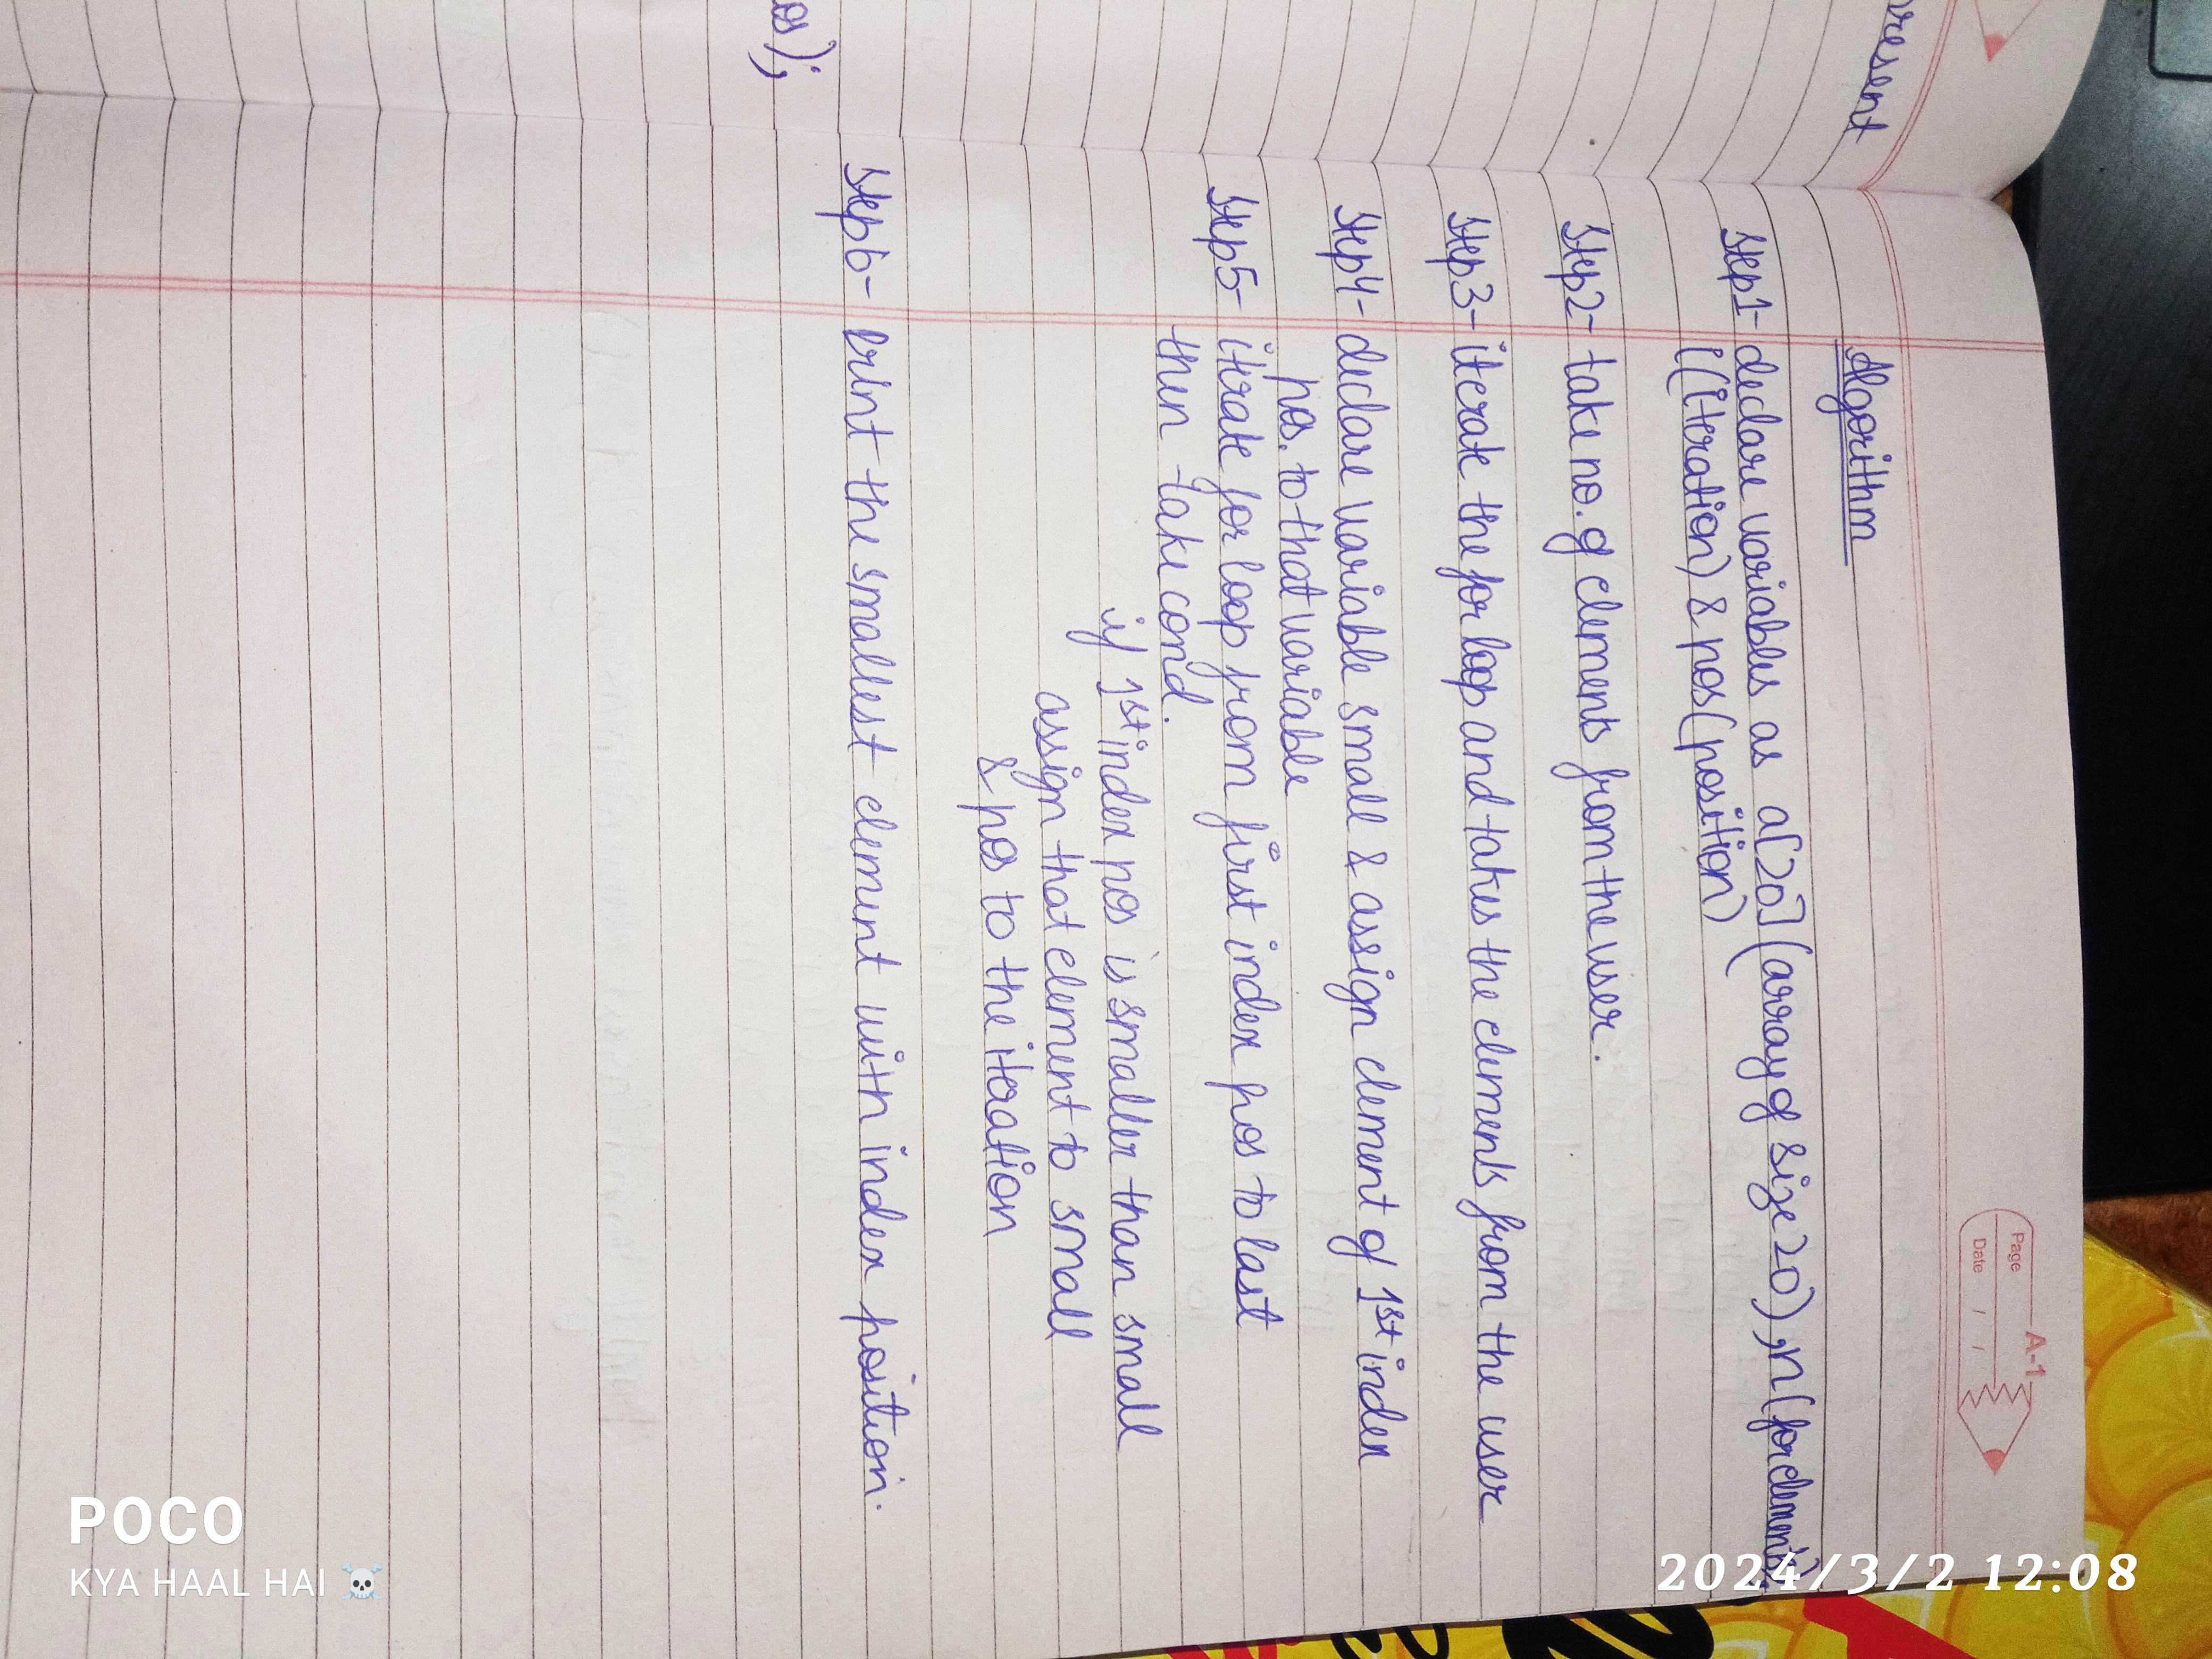 resent
os);
A-1
Page
Date / /
Algorithm
Step1- declare variables as a[20](array of size 20), n(for elements),
i(iteration) & pos(position)
Step2- take no. of elements from the user.
Step3- iterate the for loop and takes the elements from the user
Step4- declare variable small & assign element of 1st index
pos. to that variable
Step5- itirate for loop from first index pos to last
then take cond.
if 1st index pos is smaller than small
assign that element to small
& pos to the iteration
Step6- Print the smallest element with index position.
POCO
KYA HAAL HAI ☠️
2024/3/2 12:08